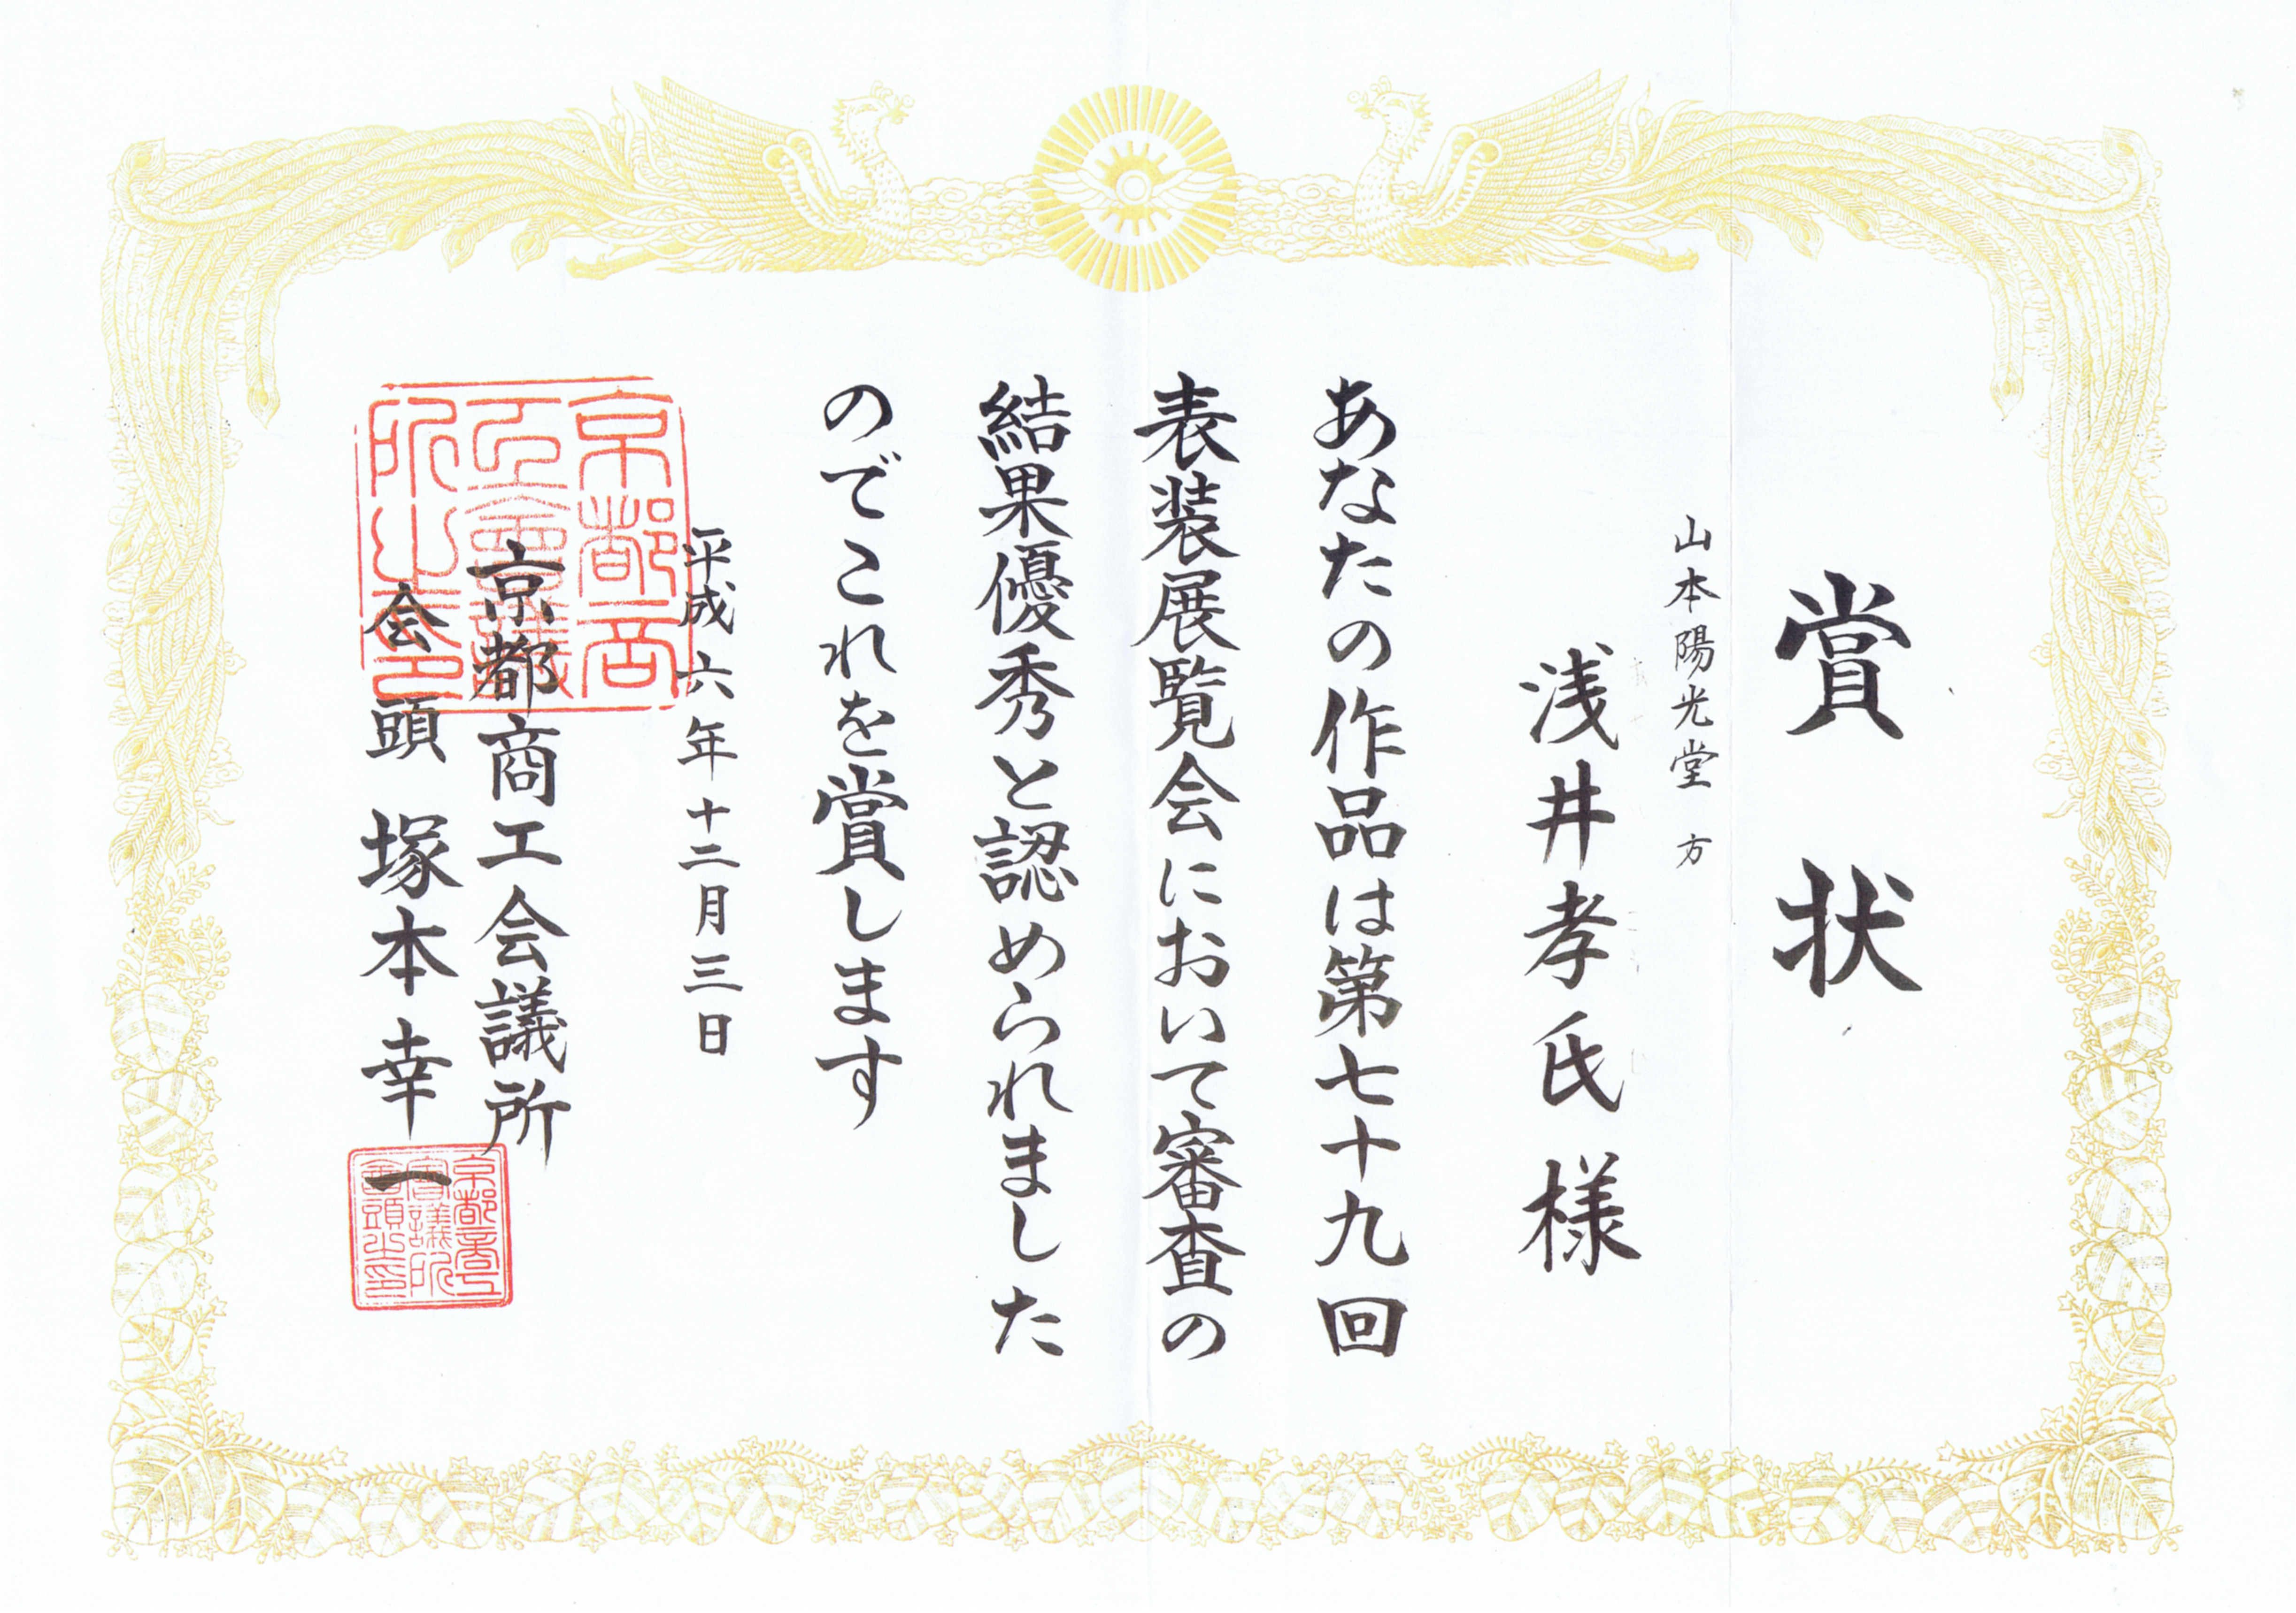 賞状
山本陽光堂 方
浅井孝氏 様
あなたの作品は第七十九回
表装展覧会において審査の
結果優秀と認められました
のでこれを賞します
平成六年十二月三日
京都商工会議所
会頭 塚本幸一
京都商工会議所之印
京都商工会議所会頭之印